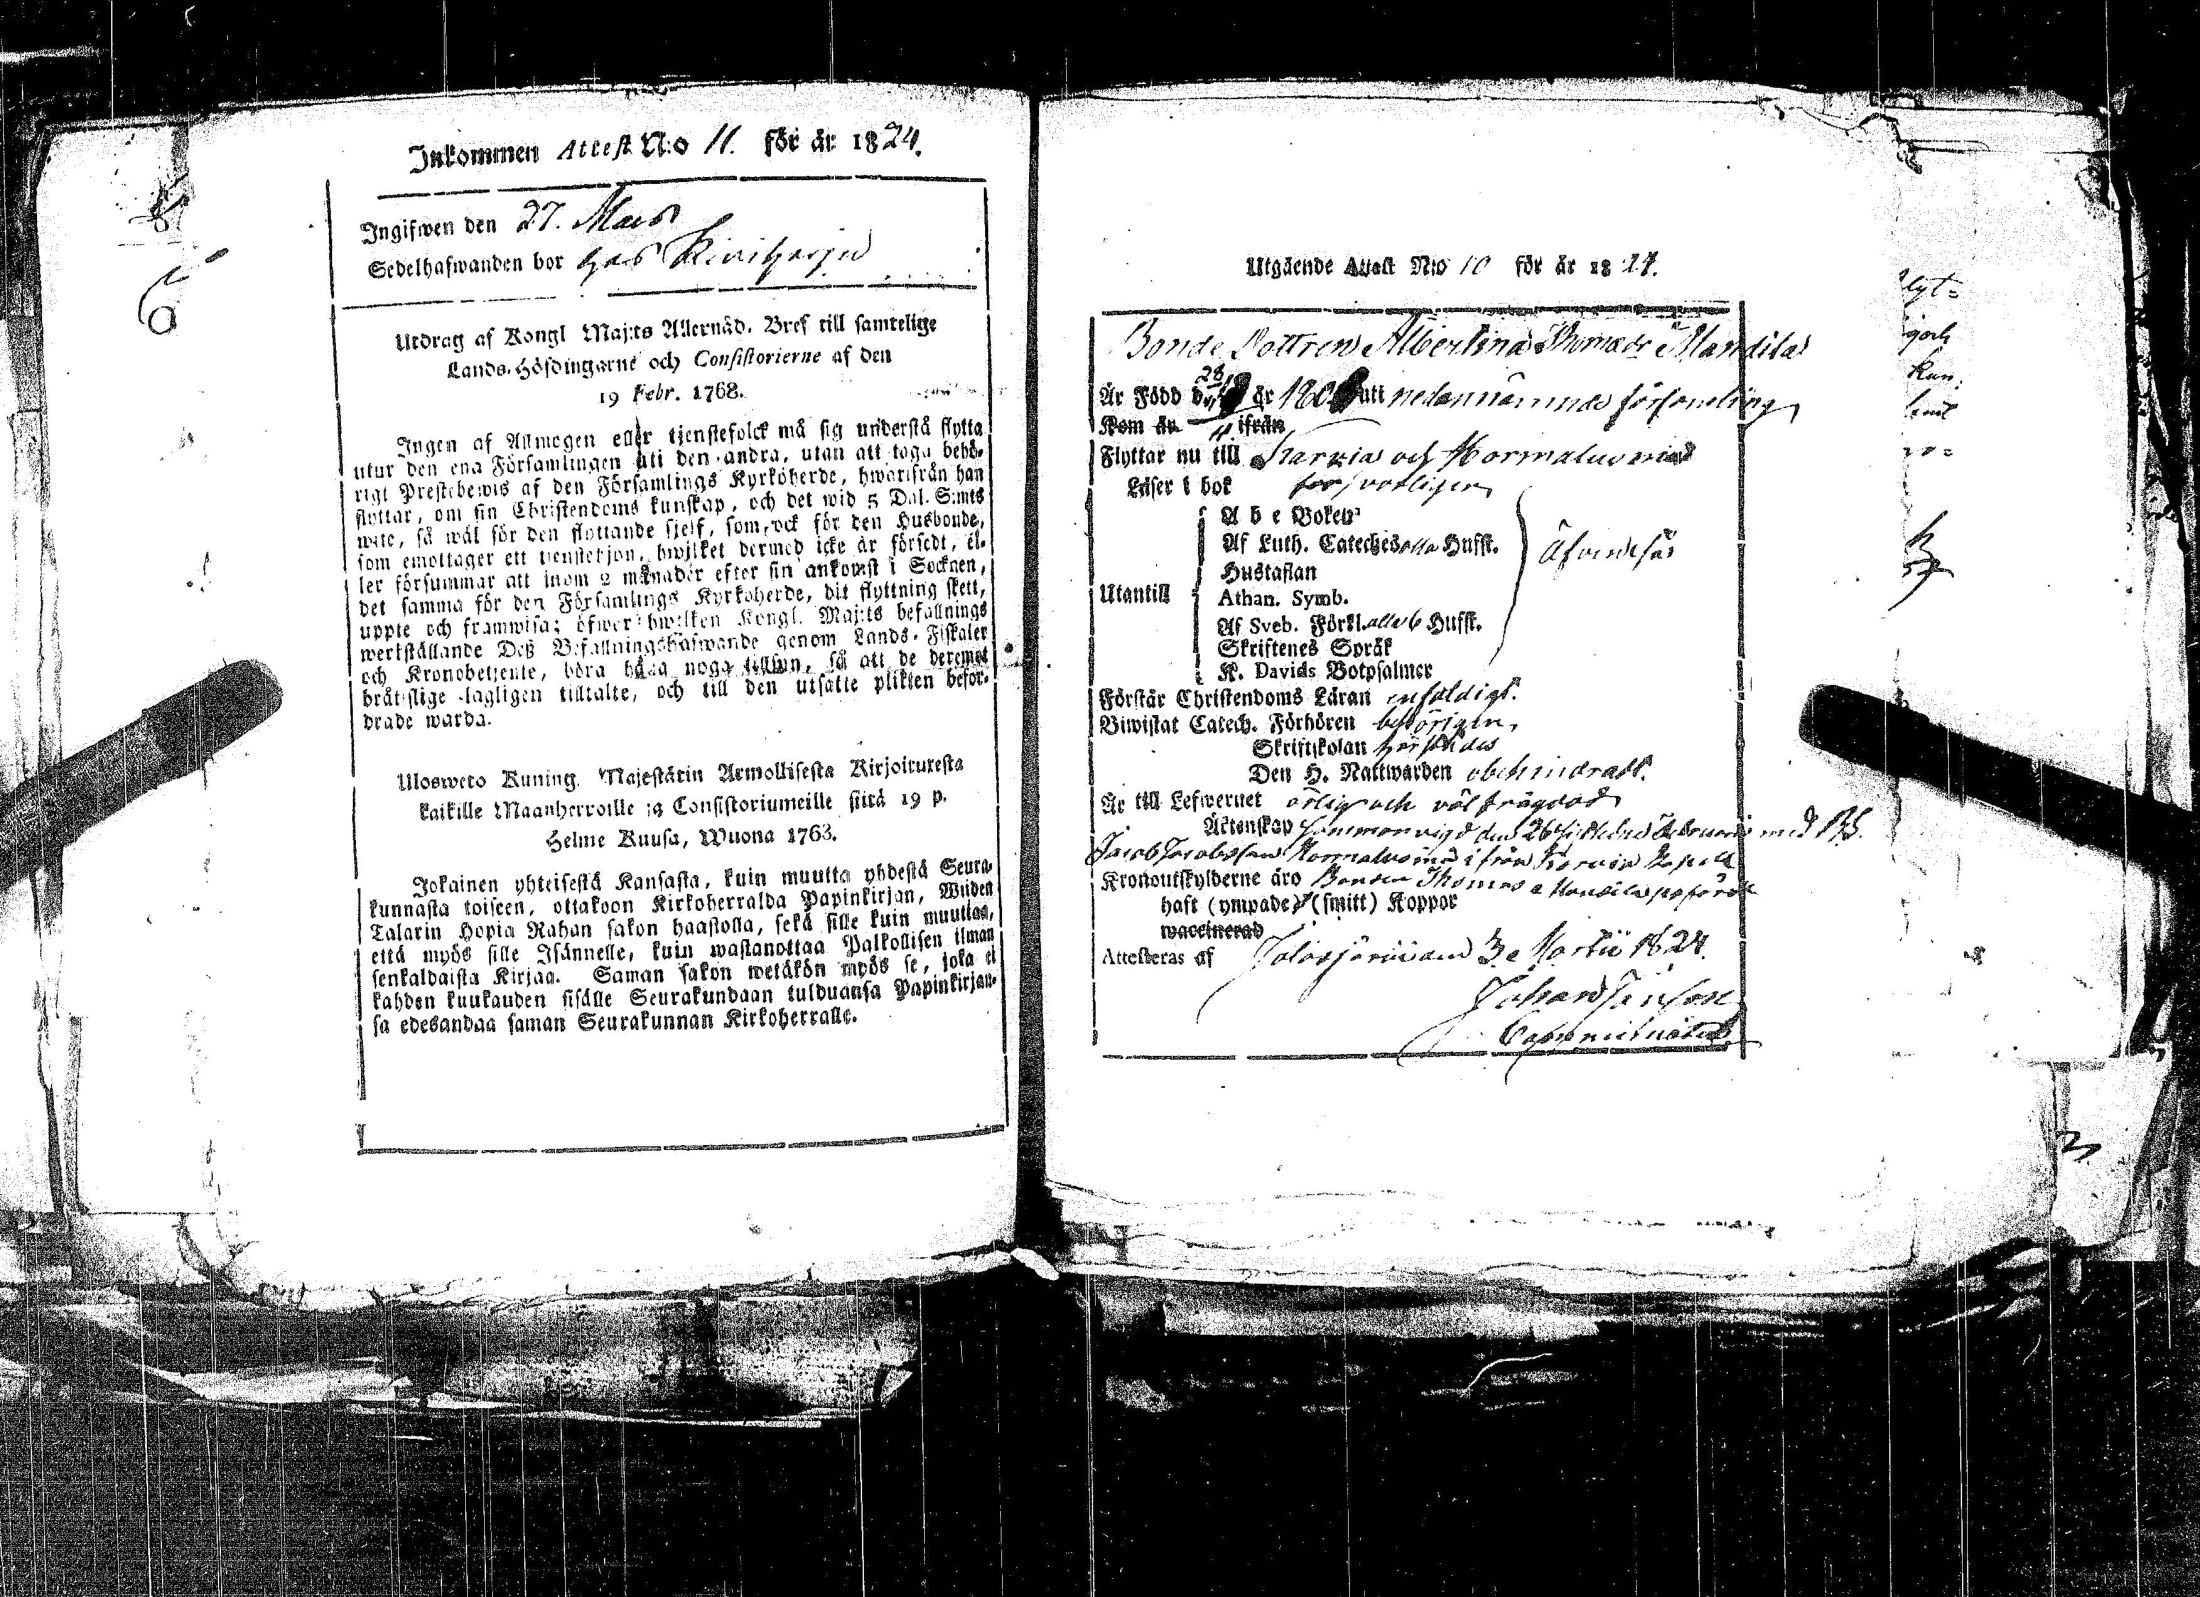 Inkommen Attest N:o 11. för år 1824.
Ingifwen den 27. Mars
Sedelhafwanden bor hos Kiviharju
Utdrag af Kongl Maj:ts Allernåd. Bref till samtelige
Lands-Höfdingarne och Consistorierne af den
19 Febr. 1768.
Ingen af Allmogen eller tjenstefolck må sig understå flytta
utur den ena Församlingen uti den andra, utan att taga behö-
rigt Prestebewis af den Församlings Kyrkoherde, hwarifrån han
flyttar, om sin Christendoms kunskap, och det wid 5 Dal. S:mts
wite, så wäl för den flyttande sjelf, som ock för den Husbonde,
som emottager ett tienstehjon, hwilket dermed icke är försedt, el-
ler försummar att inom 2 månader efter sin ankomst i Socknen,
det samma för den Församlings Kyrkoherde, dit flyttning skett,
uppte och framwisa; öfwer hwilken Kongl. Maj:ts befallnings
werkställande Deß Befallningshafwande genom Lands-Fiskaler
och Kronobetjente, böra hafa noga tillsyn, så att de deremot
brätslige lagligen tilltalte, och till den utsatte plikten befor-
drade warda.
Ulosweto Kuning. Majestätin Armollisesta Kirjoituxesta
kaikille Maanherroille ja Consistoriumeille siitä 19 p.
Helme Kuusa, Wuona 1763.
Jokainen yhteisestä Kansasta, kuin muutta yhdestä Seura-
kunnasta toiseen, ottakoon Kirkoherralda Papinkirjan, Wiiden
Talarin Hopia Rahan sakon haastolla, sekä sille kuin muuttaa,
että myös sille Isännelle, kuin wastanottaa Palkollisen ilman
senkaldaista Kirjaa. Saman sakon wetäkön myös se, joka ei
kahden kuukauden sisälle Seurakundaan tulduansa Papinkirjan-
sa edesandaa saman Seurakunnan Kirkoherralle.
Utgående Attest N:o 10 för år 1824.
Bonde Dottren Albertina Thomadr Mandila
Är Född d. 28 år 180 uti nedannämnde församling
Kom år ifrån
Flyttar nu till Karvia och Kormaluoma
Läser i bok försvarligen
A b c Boken
Af Luth. Cateches alla Hufst.
Hustaflan
Utantill Athan. Symb. Äfvenså
Af Sveb. Förkl. alla 6 Hufst.
Skriftenes Språk
K. Davids Botpsalmer
Förstår Christendoms Läran enfaldigt.
Biwistat Catech. Förhören behörigen,
Skriftskolan
Den H. Nattwarden obehindradt.
Är till Lefwernet ärlig och väl frägdad
Äktenskap sammanvigd den 26 sistledne Februarii med B.S.
Jacob Jacobsson Kormaluoma ifrån Karvia Kapell
Kronoutskylderne äro Bonden Thomas Mandila påförde
haft (ympade) (smitt) Koppor
waccinerad
Attesteras af Jalasjärvi d. 3 Martii 1824.
Johan